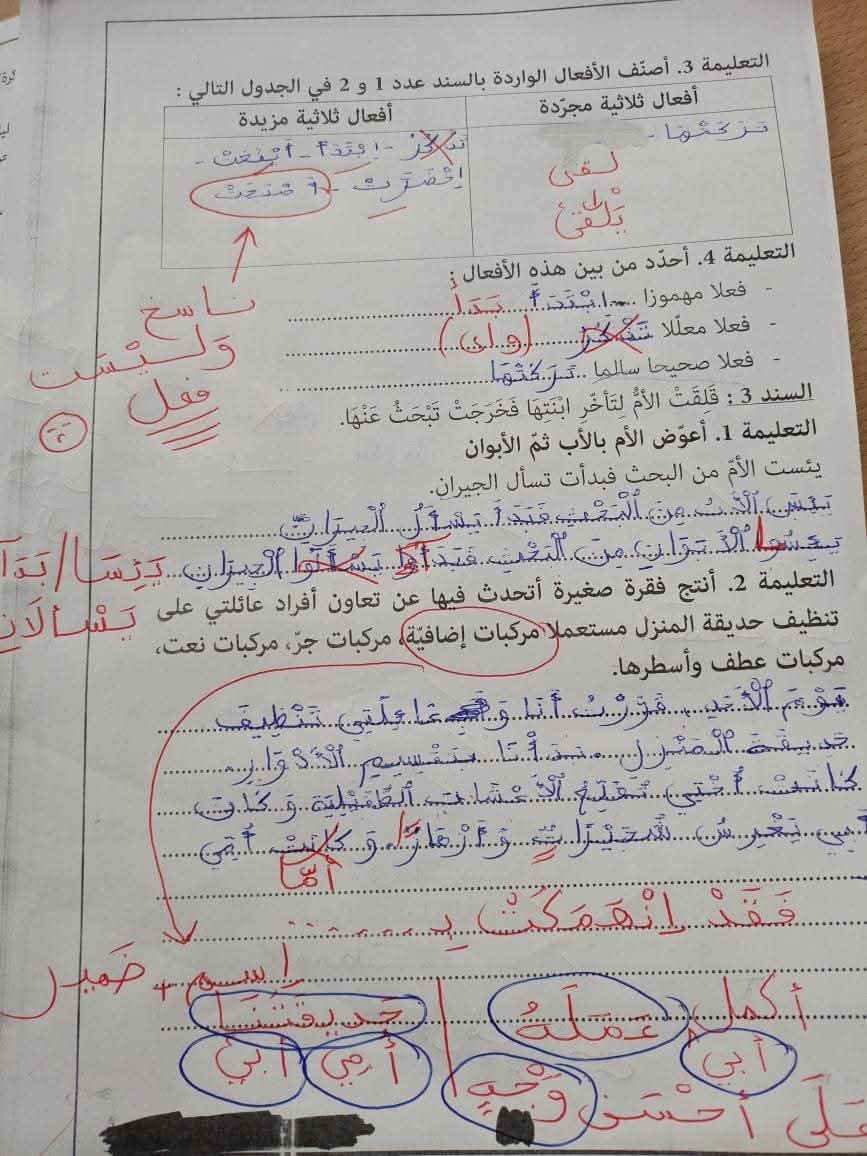 التعليمة 3. أصنّف الأفعال الواردة بالسند عدد 1 و 2 في الجدول التالي :
أفعال ثلاثية مجرّدة
أفعال ثلاثية مزيدة
تركتها -
لقى
يلقى
- ابتدأ - أينعت -
اخضرّت - أصبحت
ناسخ
وليست
فعل
التعليمة 4. أحدّد من بين هذه الأفعال :
- فعلا مهموزا ابتدأ بدأ
- فعلا معتلّا (واي)
- فعلا صحيحا سالما تركتها
السند 3 : قَلِقَتْ الأمُّ لِتَأخّرِ ابْنَتِهَا فَخَرَجَتْ تَبْحَثُ عَنْهَا.
التعليمة 1. أعوّض الأم بالأب ثمّ الأبوان
يئست الأمّ من البحث فبدأت تسأل الجيران.
يئس الأب من البحث فبدأ يسأل الجيران
يئسوا الأبوان من البحث فبدأوا يسألوا الجيران يَئِسَا / بَدَآ
يَسْألَانِ
التعليمة 2. أنتج فقرة صغيرة أتحدث فيها عن تعاون أفراد عائلتي على
تنظيف حديقة المنزل مستعملا مركبات إضافيّة، مركبات جرّ، مركبات نعت،
مركبات عطف وأسطرها.
يوم الأحد، قررت أنا و عائلتي تنظيف
حديقة المنزل. بدأنا بتقسيم الأدوار.
كانت أختي تقلع الأعشاب الطفيلية و كان
أبي يغرس شجيرات و أزهارا و كانت أمي
أمّا
فَقَدْ اِنْهَمَكَتْ بِ.....
اسم + ضمير
أكمل عَمَلَهُ حديقتنا
أبي أمي أبي
عَلَى أحْسَنِ وَجْهٍ